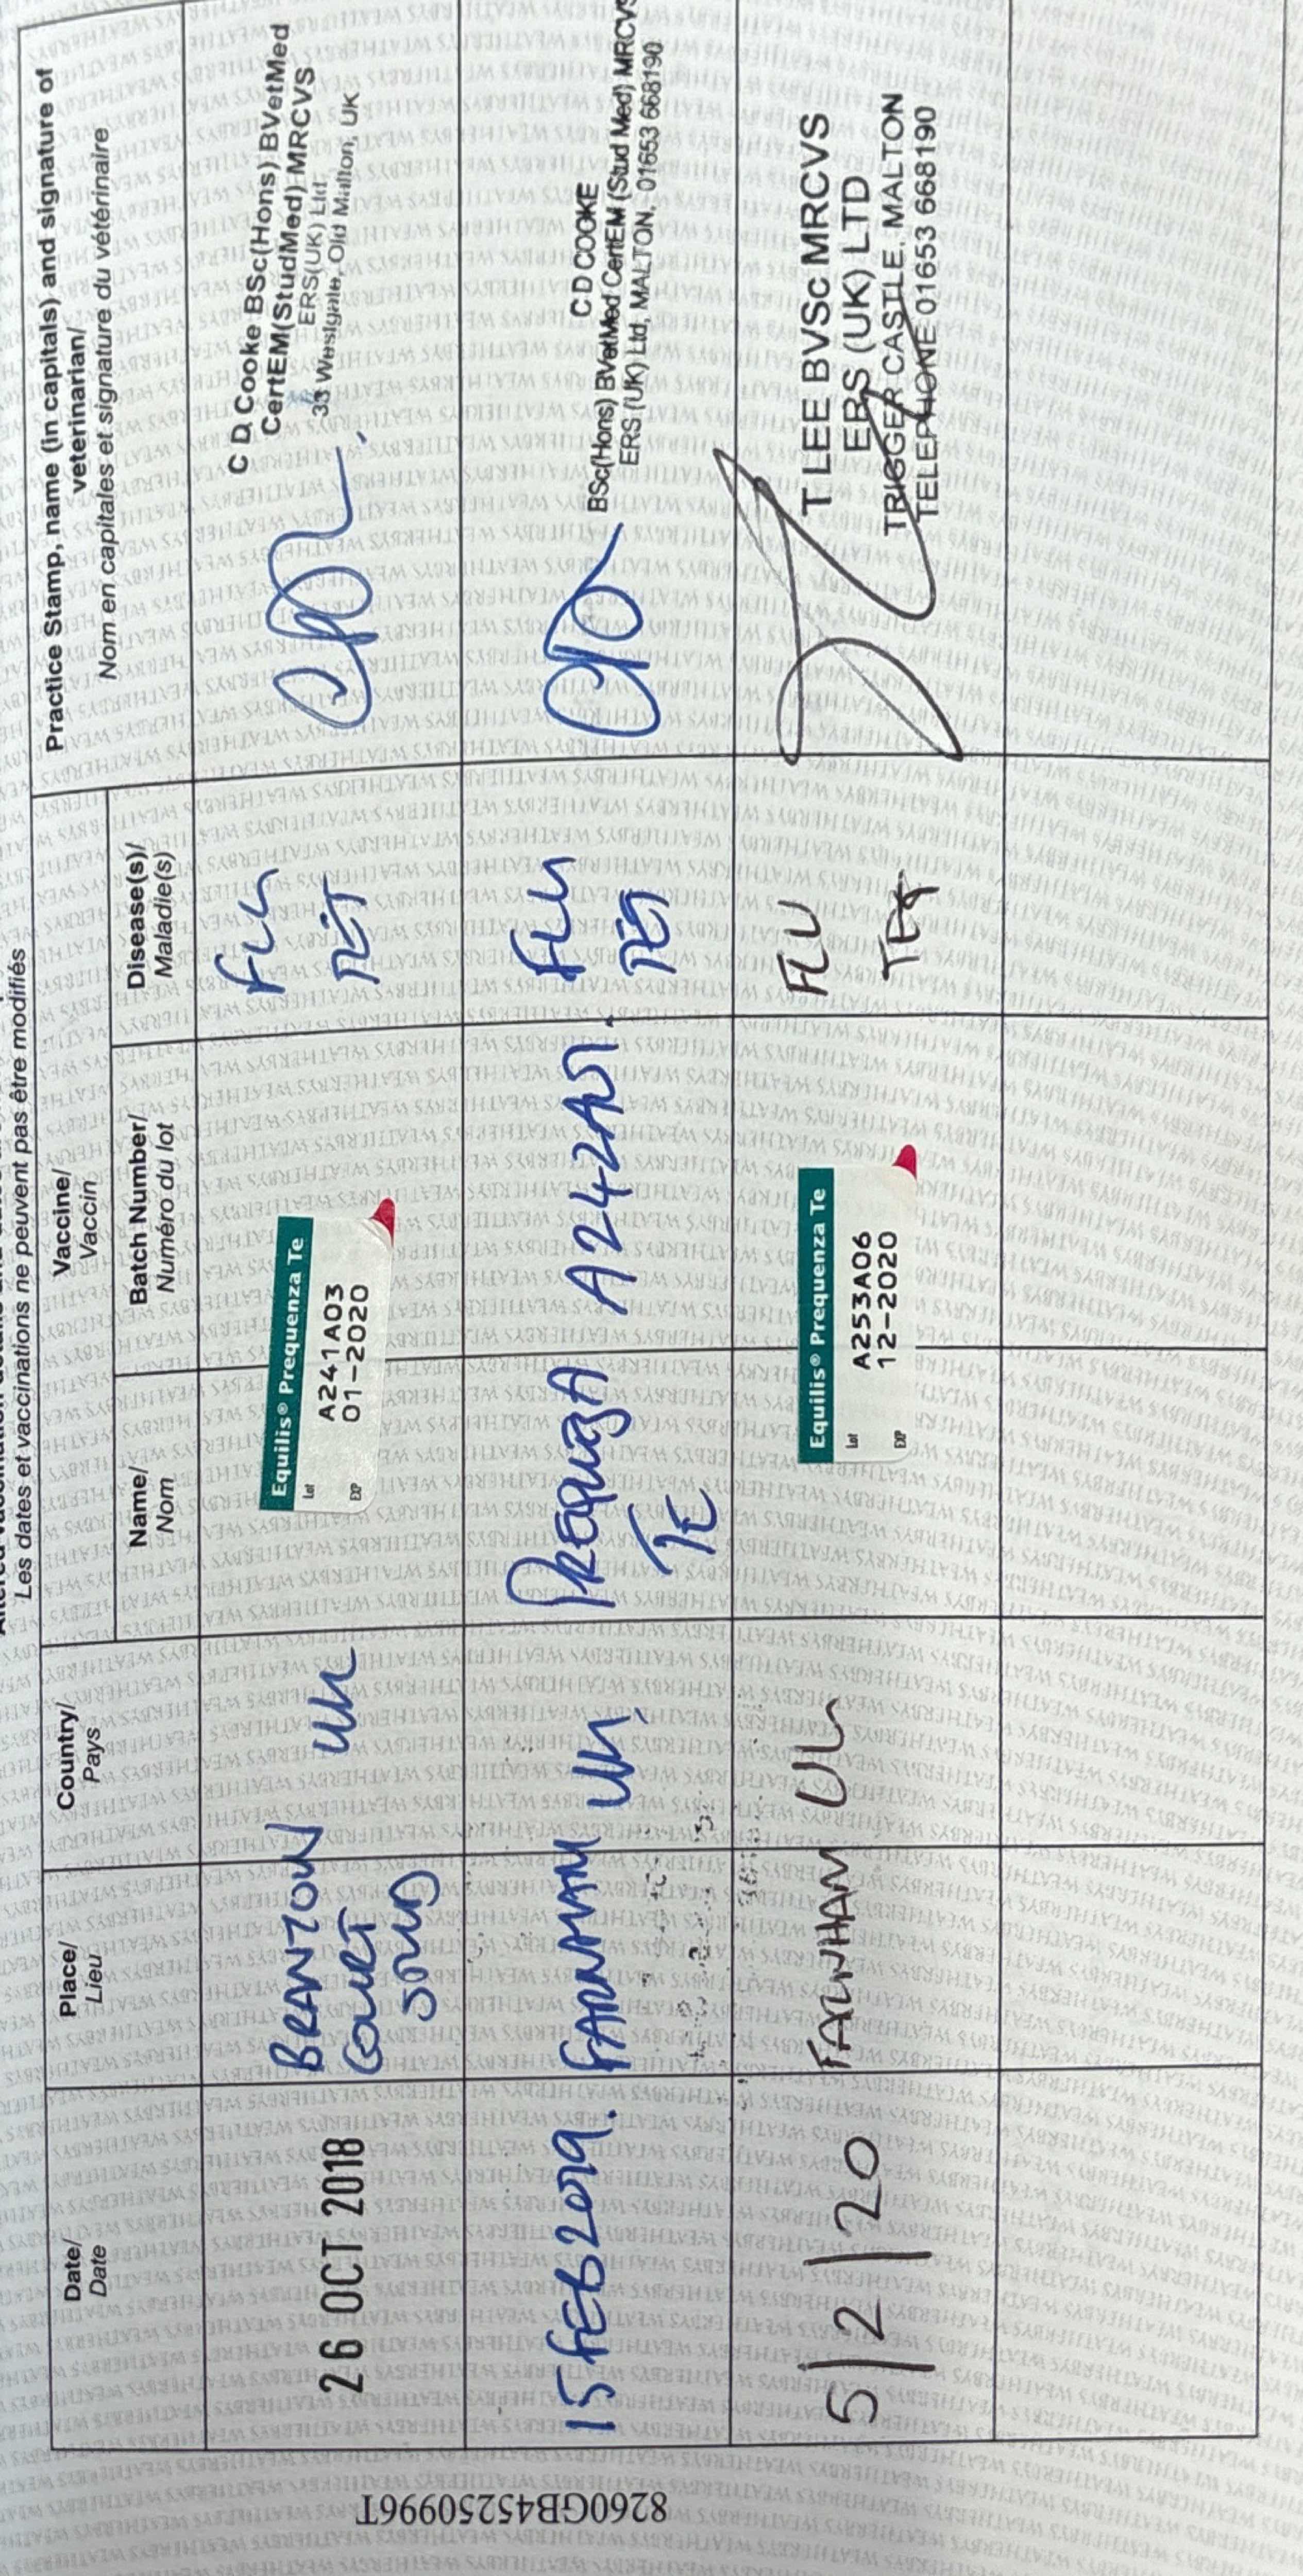 Les dates et vaccinations ne peuvent pas être modifiés
Date/
Date
Place/
Lieu
Country/
Pays
Vaccine/
Vaccin
Name/
Nom
Batch Number/
Numéro du lot
Disease(s)/
Maladie(s)
Practice Stamp, name (in capitals) and signature of
veterinarian/
Nom en capitales et signature du vétérinaire
26 OCT 2018
BRANTON
COURT
STUD
UK
Equilis® Prequenza Te
Lot A241A03
EXP 01-2020
FLU
TET
C D Cooke BSc(Hons) BVetMed
CertEM(StudMed) MRCVS
ERS(UK) Ltd
33 Westgate, Old Malton, UK
15 FEB 2019.
FARNHAM
UK
TE
FLU
TET
C D COOKE
BSc(Hons) BVetMed CertEM (Stud Med) MRCVS
ERS (UK) Ltd, MALTON, 01653 668190
5/2/20
FARNHAM
UK
Equilis® Prequenza Te
Lot A253A06
EXP 12-2020
FLU
TET
T LEE BVSc MRCVS
ERS (UK) LTD
TRIGGER CASTLE, MALTON
TELEPHONE 01653 668190
8260GB45250996T
WEATHERBYS